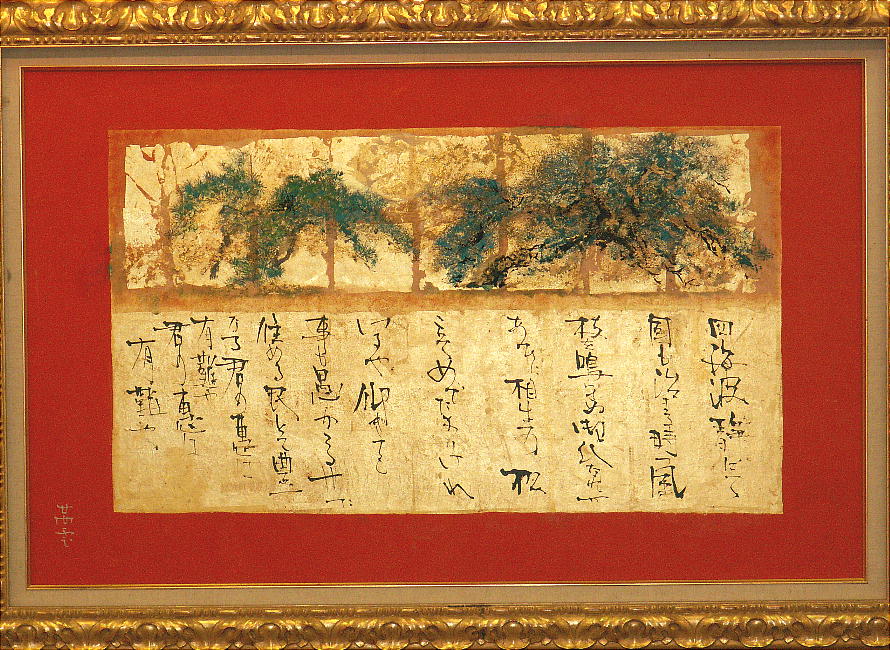 四海波静にて
国も治まる時つ風
枝を鳴らさぬ御代なれや
あひに相生の松
こそめでたかりけれ
げにや仰ぎても
事も愚かゝる世に
住める民とて豊
かなる君の恵に
有難や
君の恵に
有難や